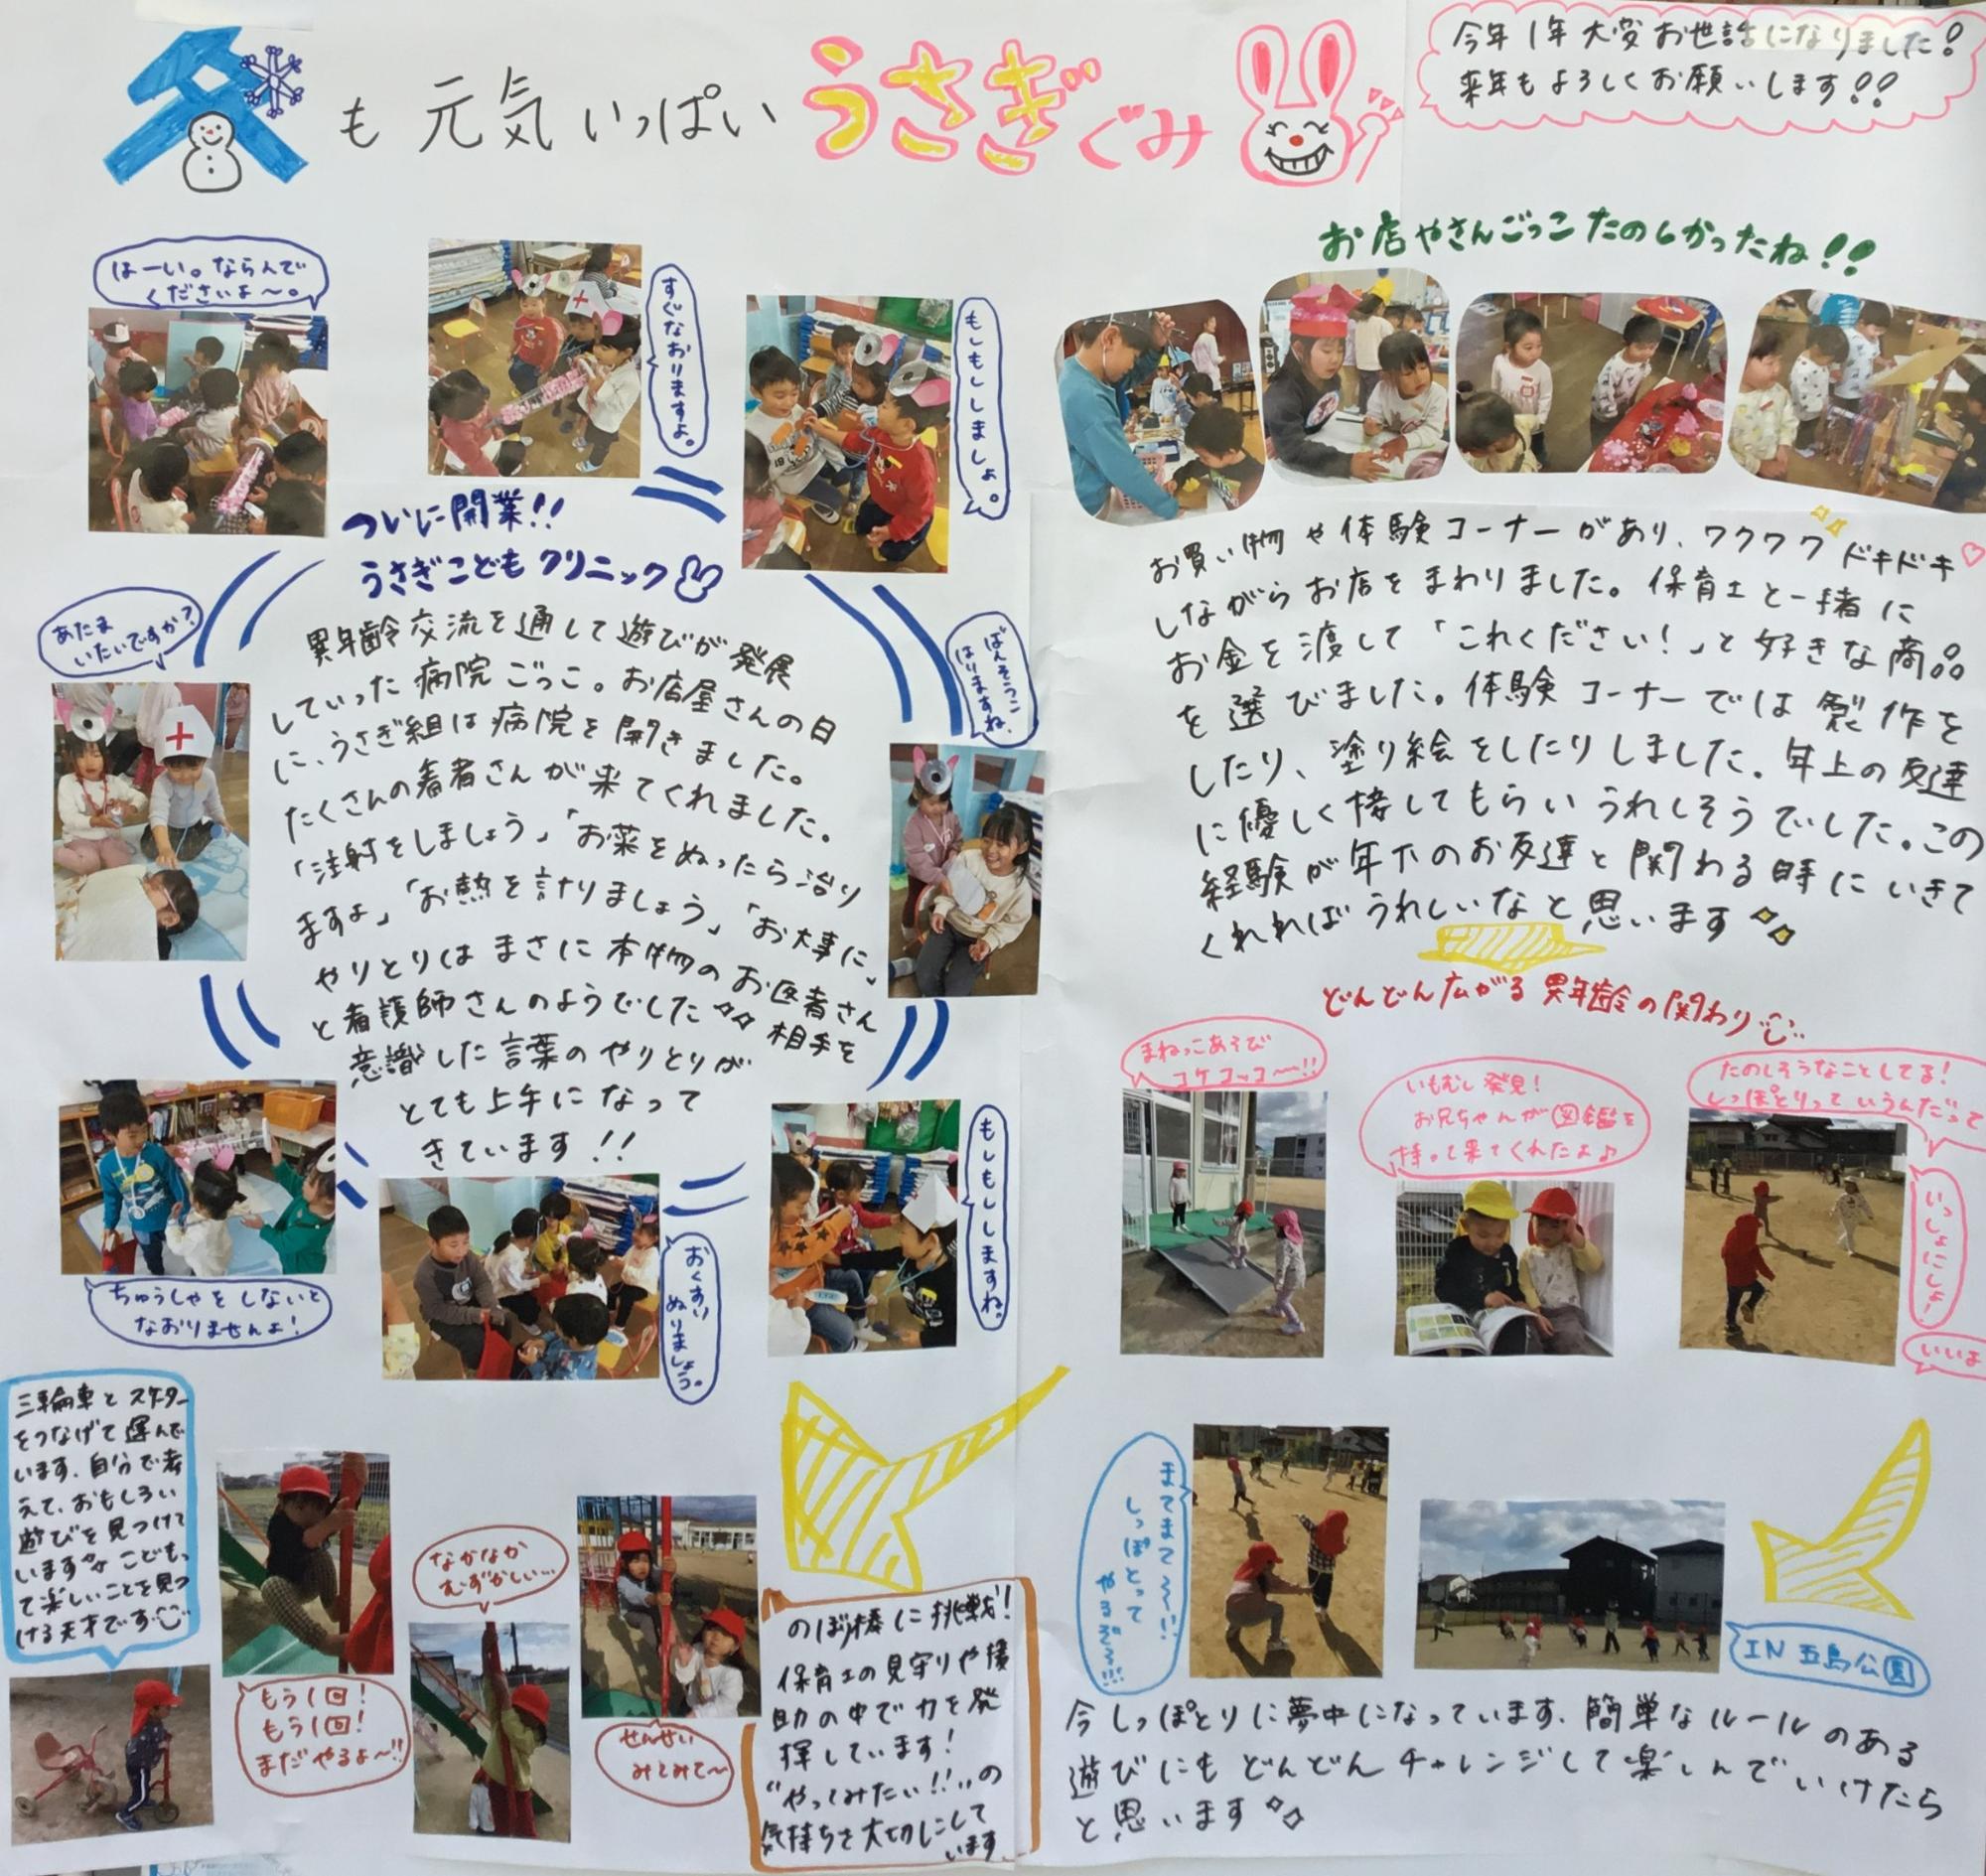 冬も元気いっぱいうさぎぐみ
今年1年大変お世話になりました!
来年もよろしくお願いします!!
はーい。ならんで
くださいよ〜。
すぐなおりますよ。
もしもししましょ。
ついに開業!!
うさぎこどもクリニック
あたま
いたいですか?
ばんそうこ
はりますね。
異年齢交流を通して遊びが発展
していった病院ごっこ。お店屋さんの日
に、うさぎ組は病院を開きました。
たくさんの患者さんが来てくれました。
「注射をしましょう」「お薬をぬったら治り
ますよ」「お熱を計りましょう」「お大事に」
やりとりはまさに本物のお医者さん
と看護師さんのようでした 相手を
意識した言葉のやりとりが
とても上手になって
きています!!
ちゅうしゃをしないと
なおりませんよ!
おくすり
ぬりましょう。
もしもししますね。
お店やさんごっこたのしかったね!!
お買い物や体験コーナーがあり、ワクワクドキドキ
しながらお店をまわりました。保育士と一緒に
お金を渡して「これください!」と好きな商品
を選びました。体験コーナーでは製作を
したり、塗り絵をしたりしました。年上の友達
に優しく接してもらいうれしそうでした。この
経験が年下のお友達と関わる時にいきて
くれればうれしいなと思います
どんどん広がる異年齢の関わり
まねっこあそび
コケコッコ〜!!
いもむし発見!
お兄ちゃんが図鑑を
持って来てくれたよ♪
たのしそうなことしてる!
しっぽとりっていうんだって
いっしょにしよ!
いいよ
三輪車とスケーター
をつなげて運んで
います。自分で考
えて、おもしろい
遊びを見つけて
います こどもっ
て楽しいことを見つ
ける天才です
もう1回!
もう1回!
まだやるよ〜!!
なかなか
むずかしい…
せんせい
みてみて〜
のぼり棒に挑戦!
保育士の見守りや援
助の中で力を発
揮しています!
"やってみたい!!"の
気持ちを大切にして
います
まてまて〜!!
しっぽとって
やるぞ〜!!!
IN 五島公園
今しっぽとりに夢中になっています。簡単なルールのある
遊びにもどんどんチャレンジして楽しんでいけたら
と思います